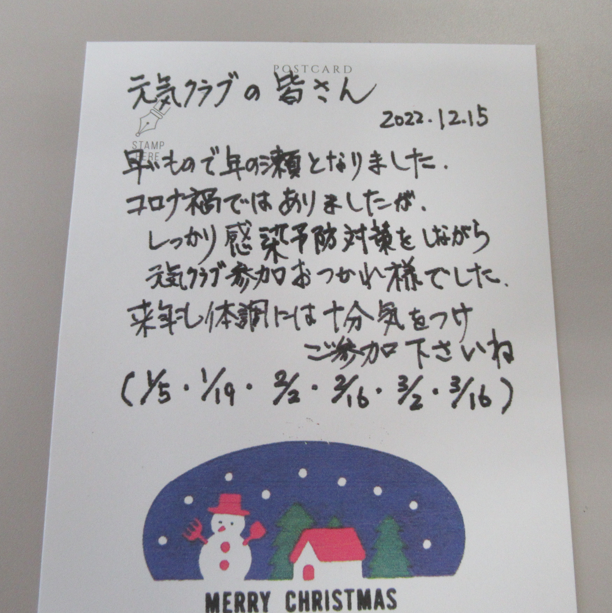 POSTCARD
元気クラブの皆さん
2022.12.15
STAMP
HERE
早いもので年の瀬となりました.
コロナ禍ではありましたが.
しっかり感染予防対策をしながら
元気クラブ参加おつかれ様でした.
来年も体調には十分気をつけ
ご参加下さいね
(1/5・1/19・2/2・2/16・3/2・3/16)
MERRY CHRISTMAS